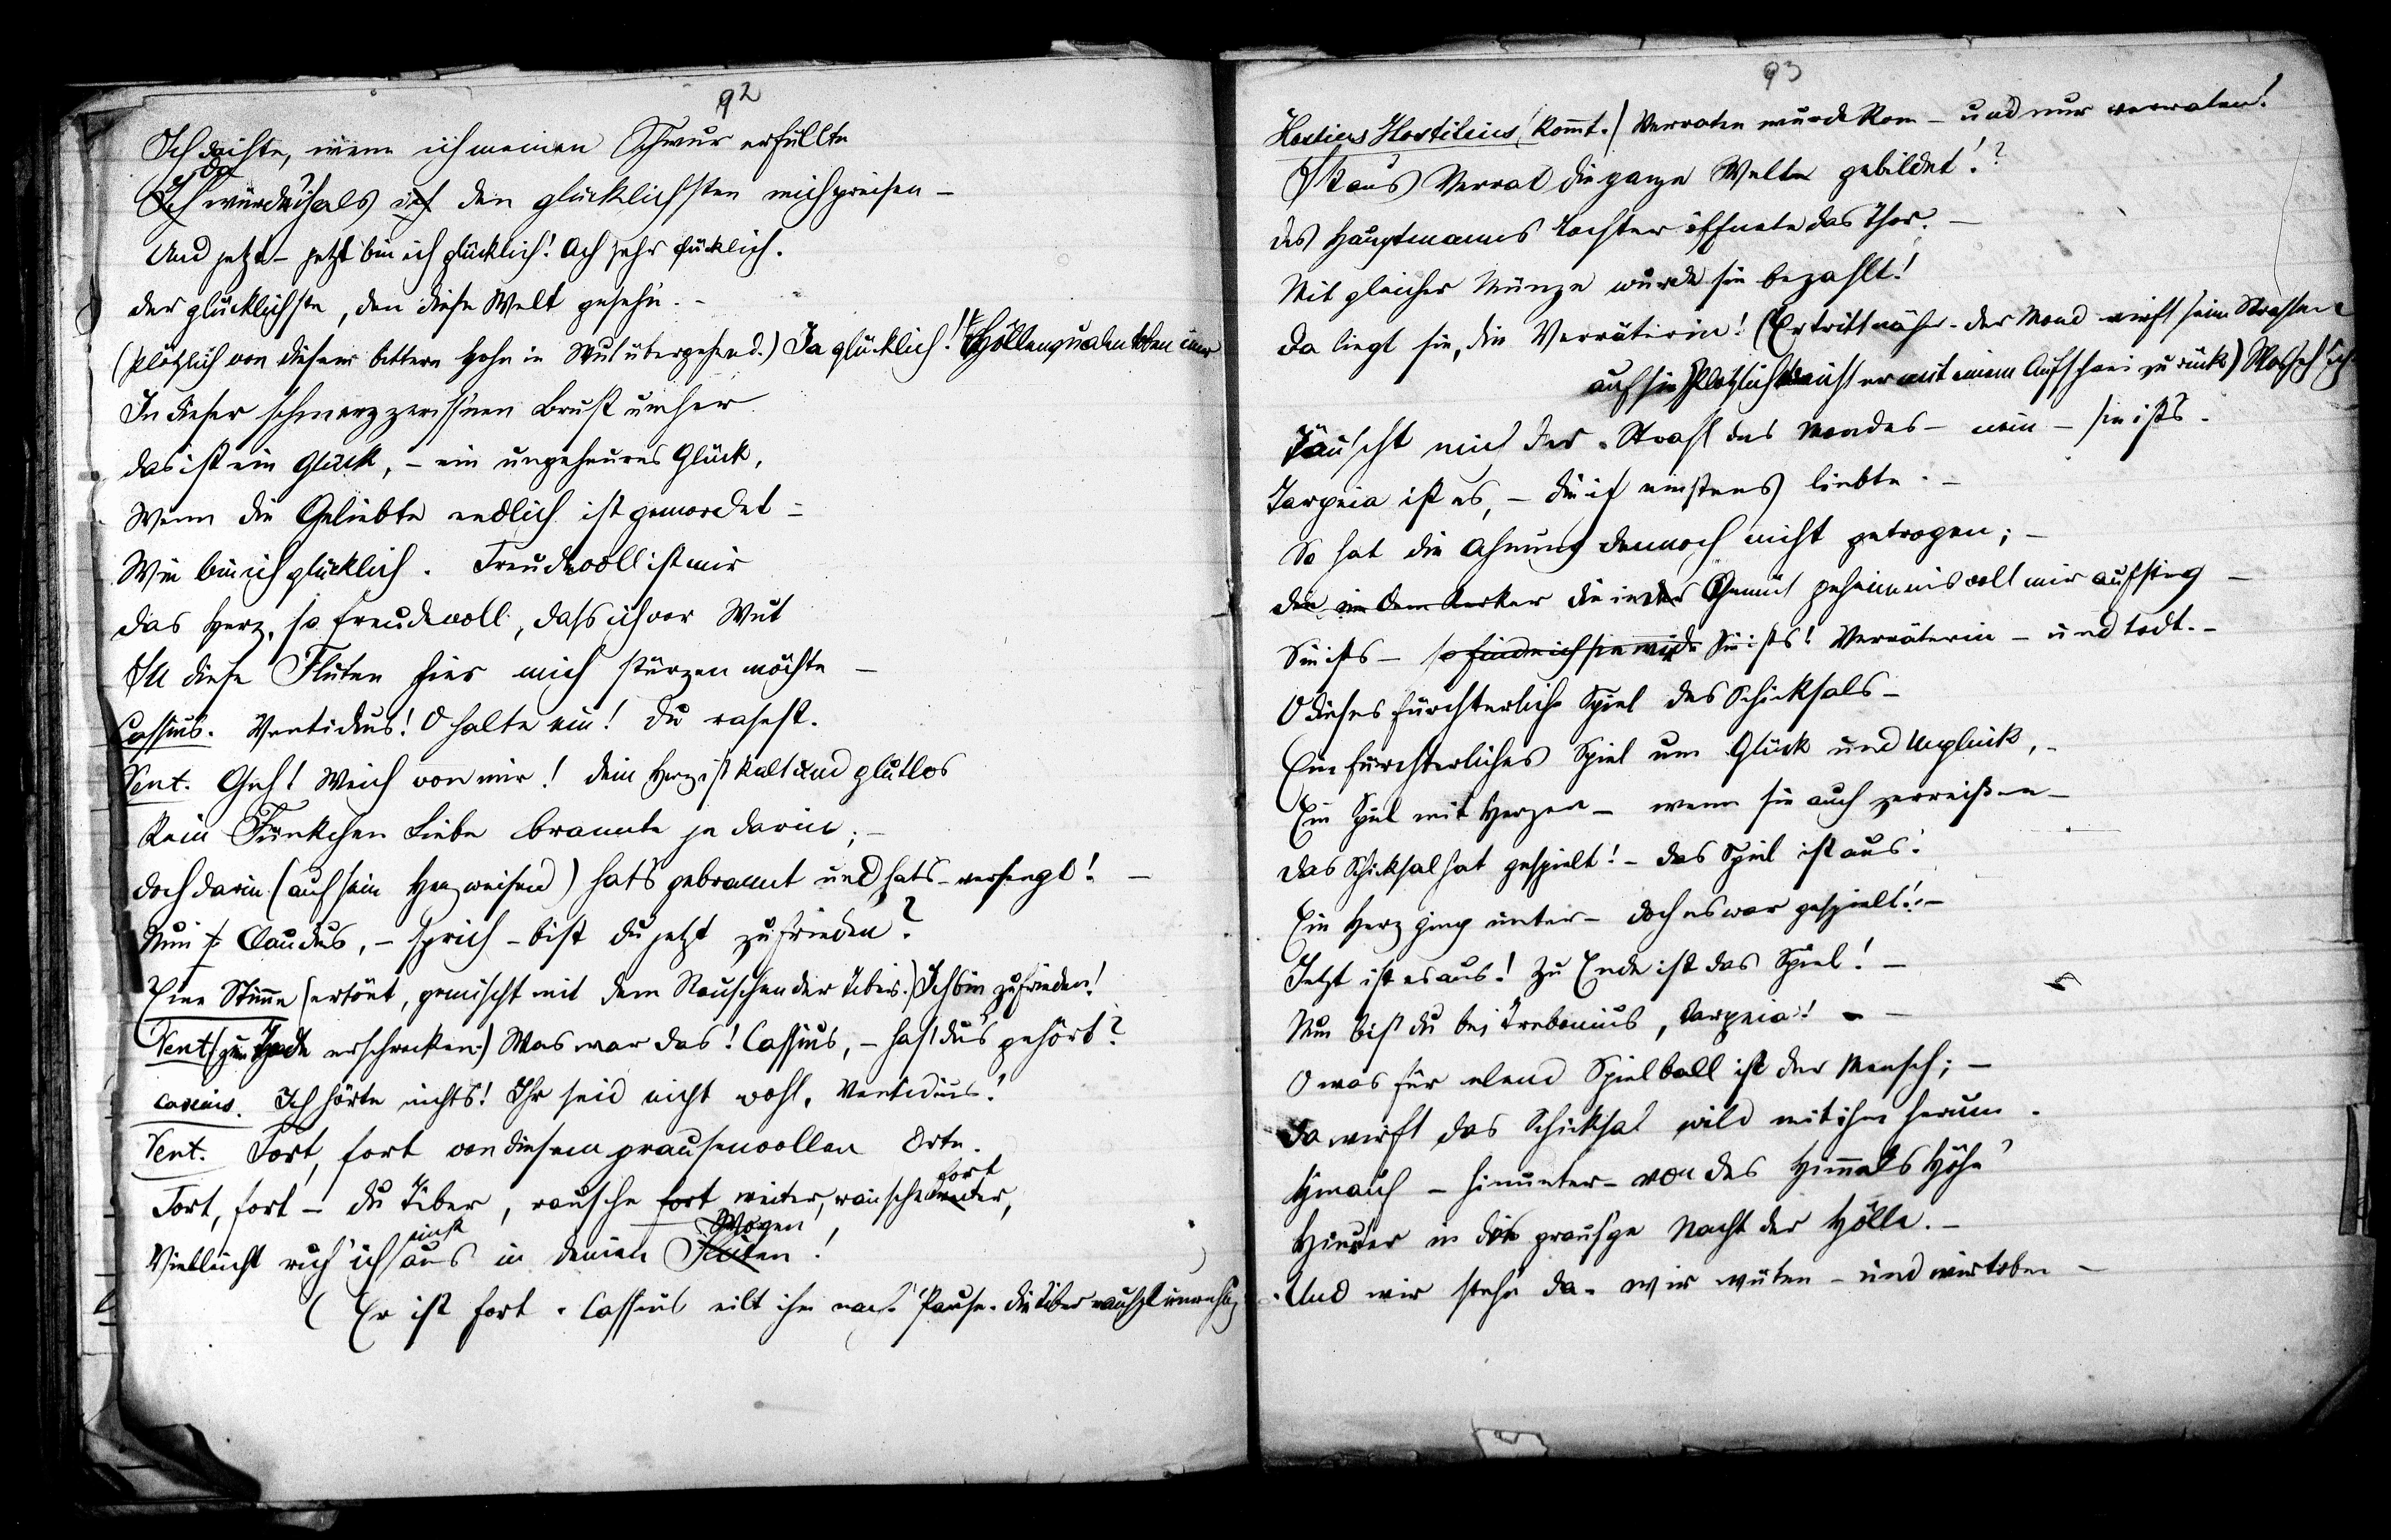 92
Ich dachte, wenn ich meinen Schwur erfüllte
da
Ich würde ich als ich den glücklichsten mich preisen –
Und jetzt – jetzt bin ich glücklich! Ach sehr glücklich.
der glücklichste, den diese Welt geseh'n. –
(plötzlich von diesem bittern Hohn in Wut übergehend.) Ja glücklich! Höllenqualen toben
In dieser schmerzzerriss'nen Brust umher
das ist ein Glück, – ein ungeheures Glück,
Wenn die Geliebte endlich ist gemordet –
Wie bin ich glücklich. Freudvoll ist mir
das Herz, so freudvoll, dass ich vor Wut
In diese Fluten hier mich stürzen möchte –
Cassius. Ventidius! O halte ein! du rasest.
Vent. Geh! Weich von mir! dein Herz ist kalt und glutlos
Kein Fünkchen Liebe brannte je darin; –
doch darin (auf sein Herz weisend) hat's gebrannt und hat's versengt! –
Nun Claudus, – sprich – bist du jetzt zufrieden?
Eine Stimme (ertönt, gemischt mit dem Rauschen der Tiber.) Ich bin zufrieden!
Vent (zum Tode erschrocken.) Was war das! Cassius, – hast du's gehört?
Cassius. Ich hörte nichts! Ihr seid nicht wohl, Ventidius!
Vent. Fort, fort von diesem grausenvollen Orte.
fort
Fort, fort – du Tiber, rausche fort weiter, rausche weiter,
einst Wogen
Vielleicht ruh' ich aus in deinen Fluten!
(Er ist fort. Cassius eilt ihm nach. Pause. die Tiber rauscht
93
Hostius Hostilius (kommt.) Verraten wurde Rom – und nur verraten!
Ist aus Verrat die ganze Welt gebildet!?
des Hauptmanns Tochter öffnete das Thor. –
Mit gleicher Münze wurde sie bezahlt!
Da liegt sie, die Verräterin! (Er tritt näher. der Mond wirft seine Strahlen
auf sie. Plötzlich weicht er mit einem Aufschrei zurück) Was seh' ich
Täuscht mich der Strahl des Mondes – nein – sie ists.
Tarpeia ist es, – die ich einstens liebte. –
So hat die Ahnung dennoch nicht getrogen; –
die in dem Kerker die in der Gemüt geheimnisvoll mir aufstieg –
Sie ists – so find ich sie Sie ists! Verräterin – und todt. –
O dieses fürchterliche Spiel des Schicksals –
Ein fürchterliches Spiel um Glück und Unglück, –
Ein Spiel mit Herzen – wenn sie auch zerreißen –
das Schicksal hat gespielt! – das Spiel ist aus!
Ein Herz ging unter – doch es war gespielt! –
Jetzt ist es aus! Zu Ende ist das Spiel! –
Nun bist du bei Trebonius, Tarpeia! –
O was für elend Spielball ist der Mensch; –
Da wirft das Schicksal wild mit ihm herum.
Hinauf – hinunter – von des Himmels Höhe
Hinunter in die graus'ge Nacht der Hölle. –
Und wir steh'n da – wir wüten – und wir toben –